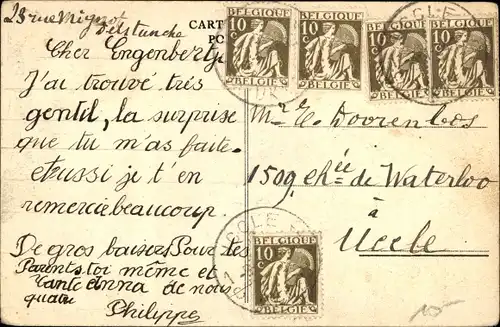 23 rue Mignot
Delstanche
CART
PO
Cher Engenbertje
J'ai trouvé très
gentil, la surprise
que tu m'as faite.
etaussi je t'en
remerciebeaucoup.
De gros baisers Pour tes
Parents toi même et
tante Anna de nous
quatre
Philippe
BELGIQUE
10 c
BELGIE
BELGIQUE
10 c
BELGIE
BELGIQUE
10 c
BELGIE
BELGIQUE
10 c
BELGIE
Mr E. Doorenbos
1509 chée de Waterloo
à
Uccle
CCLE
BELGIQUE
10 c
BELGIE